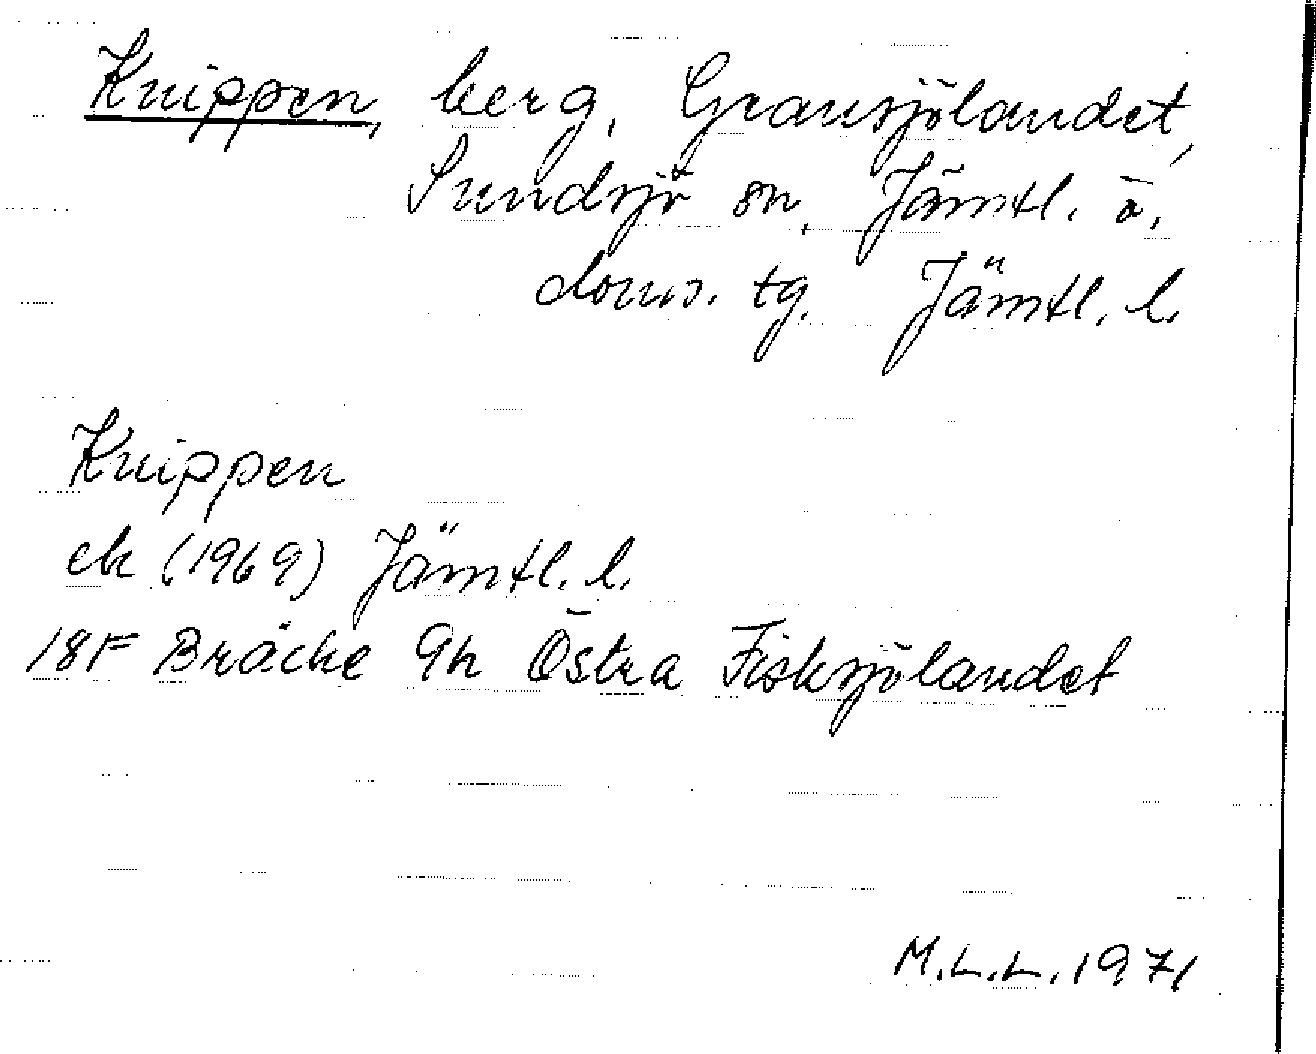 Knippen, berg, Gransjölandet,
Sundsjö sn, Jämtl. ö.
doms. tg. Jämtl. l.
Knippen
ek (1969) Jämtl. l.
18F Bräcke 9h Östra Fisksjölandet
M.L.L. 1971